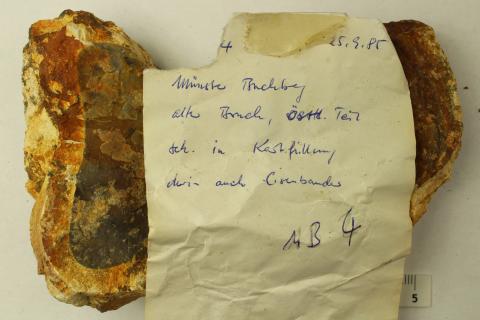 4 25.9.85
Münster Buchberg
alter Bruch, östl. Teil
sch. in Karstfüllung
darin auch Eisenbänder
MB 4
5